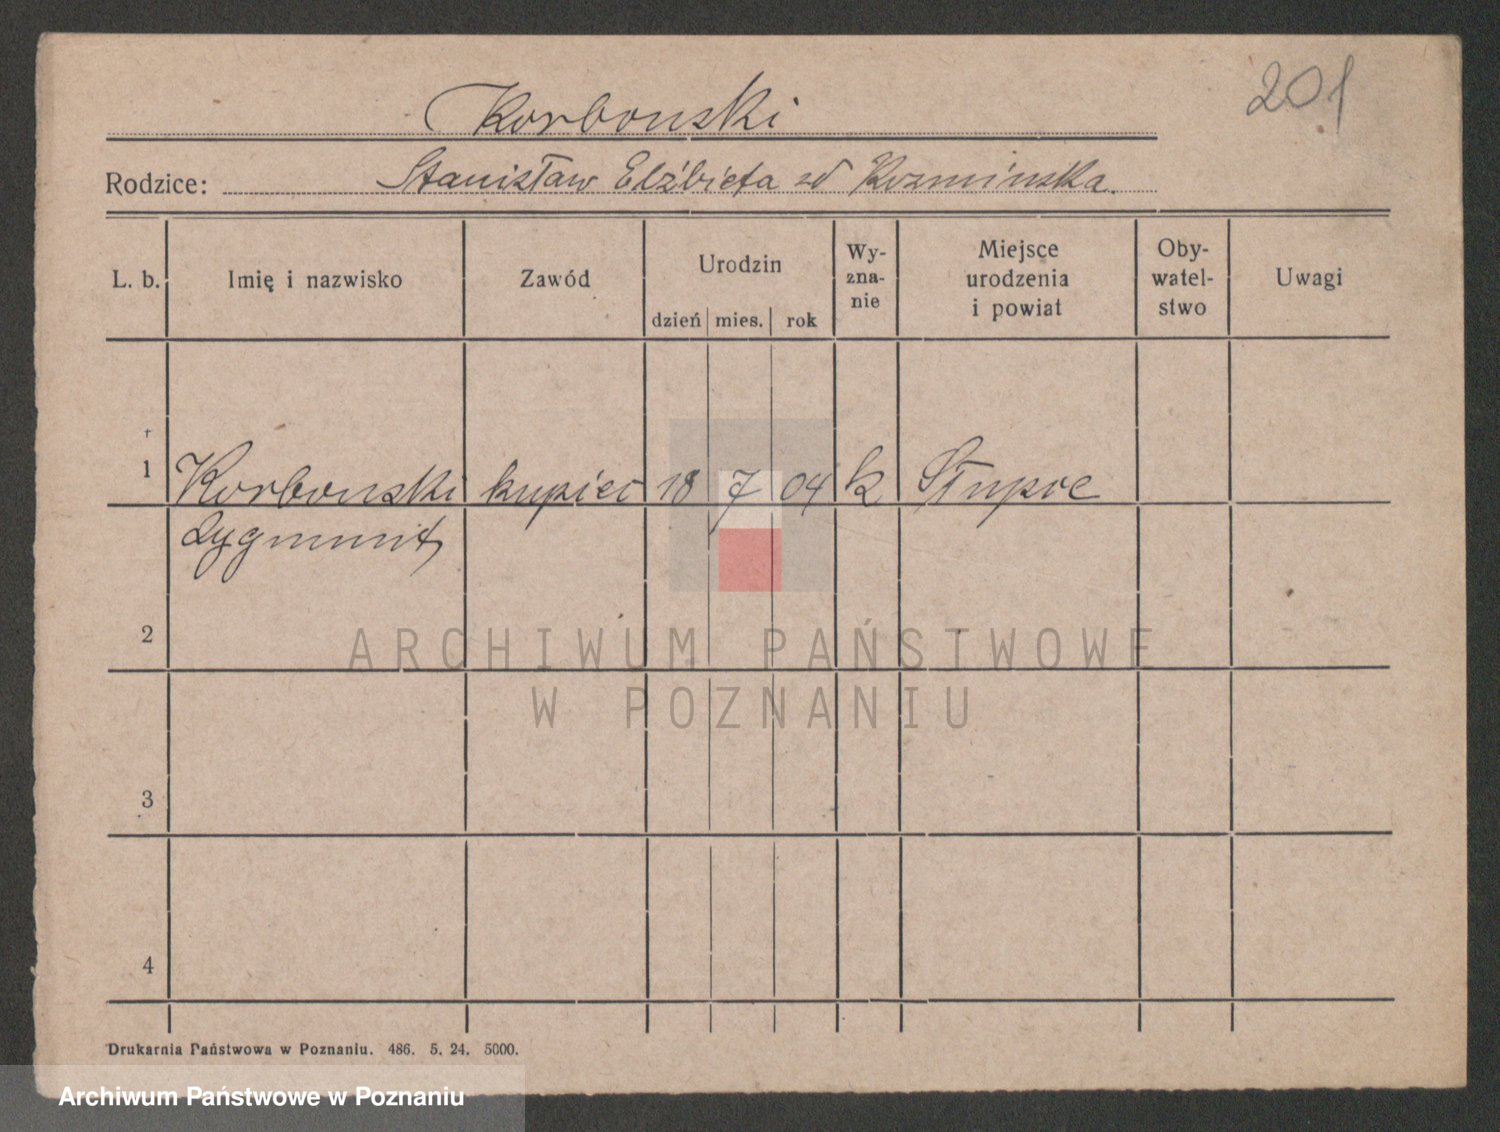 201
Korbonski
Rodzice: Stanisław Elżbieta zd Kozmińska.
L. b. Imię i nazwisko Zawód Urodzin dzień mies. rok Wy-zna-nie Miejsce urodzenia i powiat Oby-watel-stwo Uwagi
1 Korbonski kupiec 18 7 04 k Słupce
Zygmunt
2
ARCHIWUM PAŃSTWOWE
W POZNANIU
3
4
Drukarnia Państwowa w Poznaniu. 486. 5. 24. 5000.
Archiwum Państwowe w Poznaniu